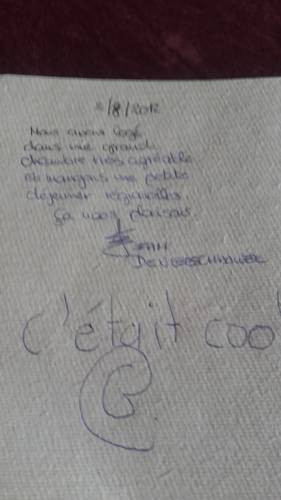 /8/2012
Nous avons logé
dans une grande
chambre très agréable
et mangions une petite
déjeuner régionalles
ça nous plaisais
JEAN
c'était coo